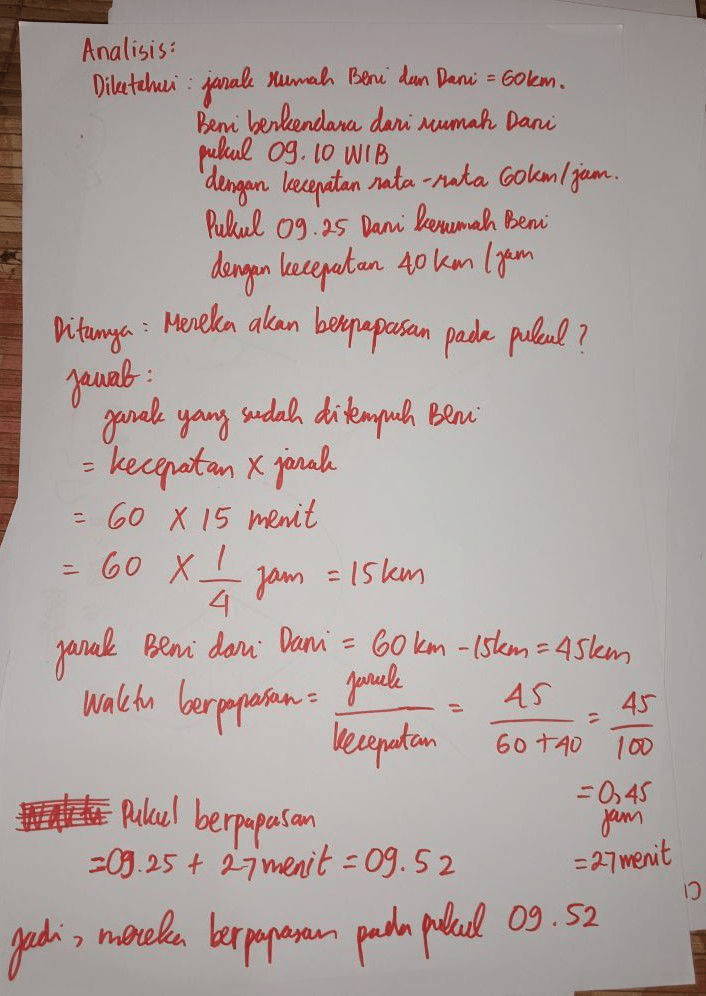 Analisis:
Diketahui : jarak rumah Beni dan Dani = 60km.
Beni berkendara dari rumah Dani
pukul 09.10 WIB
dengan kecepatan rata-rata 60km/jam.
Pukul 09.25 Dani kerumah Beni
dengan kecepatan 40 km/jam
Ditanya : Mereka akan berpapasan pada pukul ?
Jawab :
Jarak yang sudah ditempuh Beni
= kecepatan X jarak
= 60 X 15 menit
= 60 X 1/4 jam = 15km
Jarak Beni dari Dani = 60 km - 15km = 45km
Waktu berpapasan = jarak/kecepatan = 45/60+40 = 45/100
= 0,45 jam
= 27 menit
Pukul berpapasan
= 09.25 + 27 menit = 09.52
Jadi, mereka berpapasan pada pukul 09.52